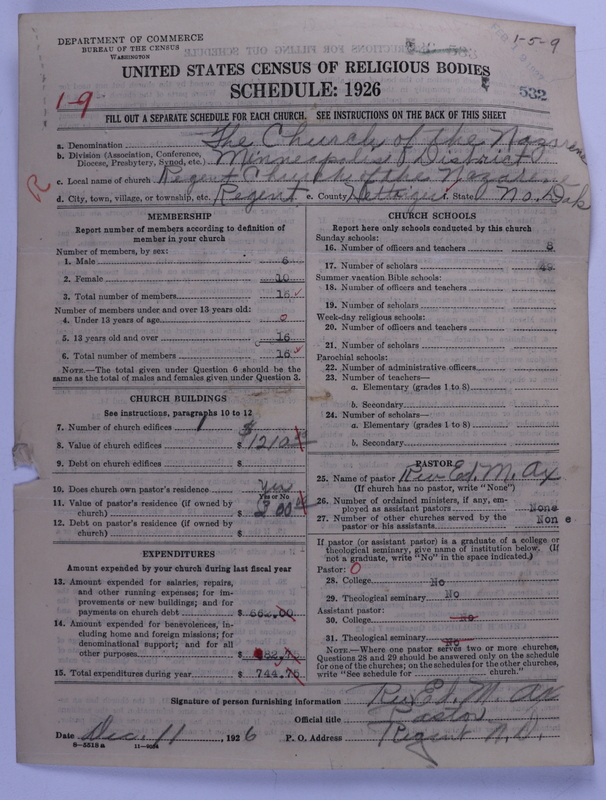 DEPARTMENT OF COMMERCE
BUREAU OF THE CENSUS
WASHINGTON
1-5-9
UNITED STATES CENSUS OF RELIGIOUS BODIES
SCHEDULE: 1926
532
1-9
FILL OUT A SEPARATE SCHEDULE FOR EACH CHURCH. SEE INSTRUCTIONS ON THE BACK OF THIS SHEET
a. Denomination The Church of the Nazarene
b. Division (Association, Conference, Diocese, Presbytery, Synod, etc.) Minneapolis District
c. Local name of church Regent Church of the Nazarene
R
d. City, town, village, or township, etc. Regent e. County Hettinger f. State No. Dak
MEMBERSHIP
Report number of members according to definition of
member in your church
Number of members, by sex:
1. Male 6
2. Female 10
3. Total number of members 16 ✓
Number of members under and over 13 years old:
4. Under 13 years of age 0
5. 13 years old and over 16
6. Total number of members 16 ✓
NOTE.—The total given under Question 6 should be
same as the total of males and females given under Question 3.
CHURCH BUILDINGS
See instructions, paragraphs 10 to 12
7. Number of church edifices 1
8. Value of church edifices $ 1210.
9. Debt on church edifices $
10. Does church own pastor's residence Yes
Yes or No
11. Value of pastor's residence (if owned by
church) $ 200
12. Debt on pastor's residence (if owned by
church) $
EXPENDITURES
Amount expended by your church during last fiscal year
13. Amount expended for salaries, repairs,
and other running expenses; for im-
provements or new buildings; and for
payments on church debt $ 662.00
14. Amount expended for benevolences, in-
cluding home and foreign missions; for
denominational support; and for all
other purposes $ 82.75
15. Total expenditures during year $ 744.75
CHURCH SCHOOLS
Report here only schools conducted by this church
Sunday schools:
16. Number of officers and teachers 8
17. Number of scholars 49
Summer vacation Bible schools:
18. Number of officers and teachers
19. Number of scholars
Week-day religious schools:
20. Number of officers and teachers
21. Number of scholars
Parochial schools:
22. Number of administrative officers
23. Number of teachers—
a. Elementary (grades 1 to 8)
b. Secondary
24. Number of scholars—
a. Elementary (grades 1 to 8)
b. Secondary
PASTOR
25. Name of pastor Rev Ed. M. Ax
(If church has no pastor, write "None")
26. Number of ordained ministers, if any, em-
ployed as assistant pastors None
27. Number of other churches served by the
pastor or his assistants None
If pastor (or assistant pastor) is a graduate of a college or
theological seminary, give name of institution below. (If
not a graduate, write "No" in the space indicated.)
Pastor: 0
28. College No
29. Theological seminary No
Assistant pastor:
30. College No
31. Theological seminary No
NOTE.—Where one pastor serves two or more churches,
Questions 28 and 29 should be answered only on the schedule
for one of the churches; on the schedules for the other churches,
write "See schedule for church."
Signature of person furnishing information Rev Ed. M. Ax
Official title Pastor
Date Dec. 11, 1926 P. O. Address Regent N.D.